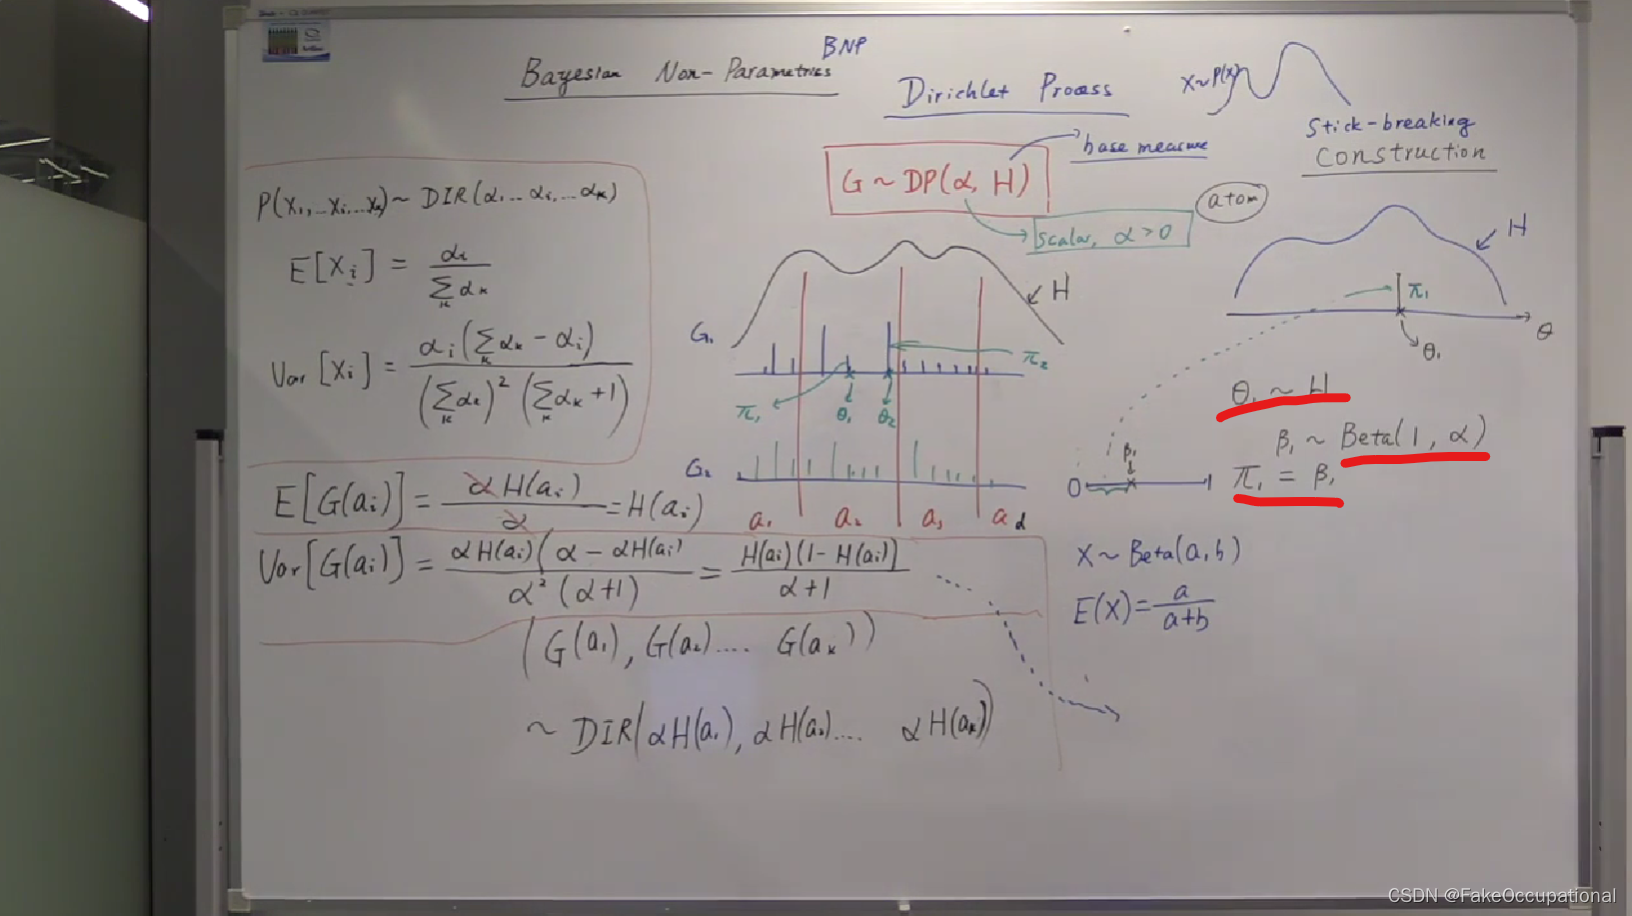 BNP
Bayesian Non-Parametrics
Dirichlet Process
X~P(x)
Stick-breaking
Construction
base measure
G ~ DP(α, H)
atom
scalar, α > 0
P(x₁,...xᵢ...xₖ) ~ DIR(α...αᵢ,...αₖ)
E[xᵢ] = αᵢ / ∑ₖ αₖ
Var[xᵢ] = αᵢ(∑ₖ αₖ - αᵢ) / (∑ₖ αₖ)² (∑ₖ αₖ + 1)
H
G₁
π₂
π₁ θ₁ θ₂
G₂
a₁ a₂ a₃ a d
H
π₁
θ
θ₁
θ₁ ~ H
β₁ ~ Beta(1, α)
β₁
0 1
π₁ = β₁
X ~ Beta(a, b)
E(X) = a / a+b
E[G(aᵢ)] = αH(aᵢ) / α = H(aᵢ)
Var[G(aᵢ)] = αH(aᵢ)(α - αH(aᵢ) / α²(α+1) = H(aᵢ)(1 - H(aᵢ)) / α+1
(G(a₁), G(a₂).... G(aₖ))
~ DIR(αH(a₁), αH(a₂).... αH(aₖ))
CSDN @FakeOccupational